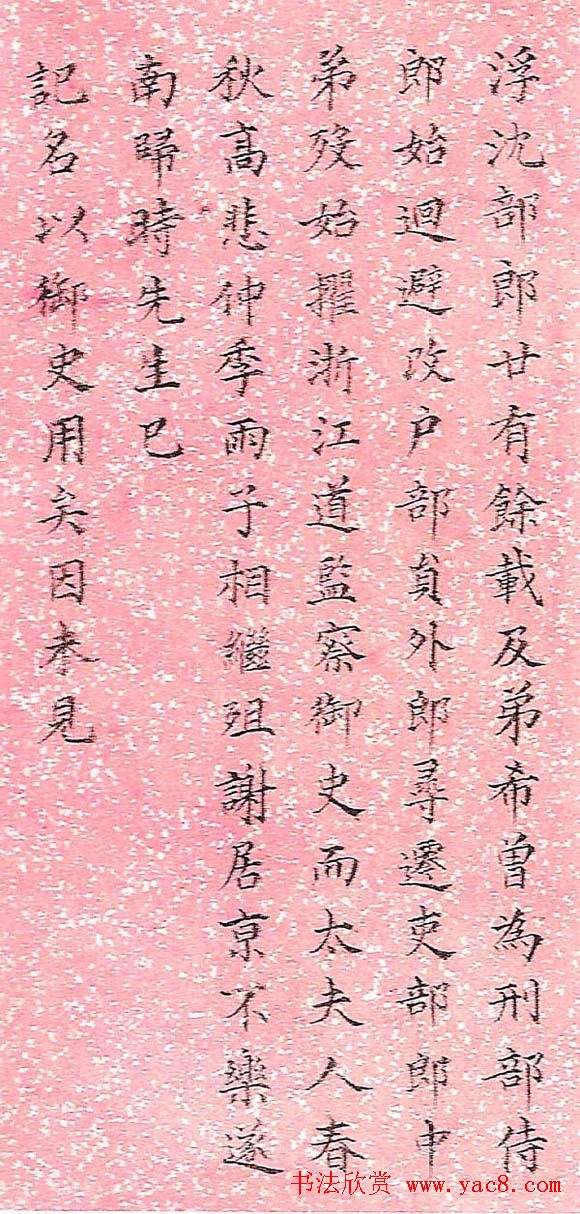 浮沈部郎廿有餘載及弟希曾為刑部侍
郎始迴避改户部負外郎尋遷吏部郎中
弟歿始擢浙江道監察御史而太夫人春
秋高悲仲季兩子相繼殂謝居京不樂遂
南歸時先生已
記名以御史用矣因未見
书法欣赏 www.yac8.com